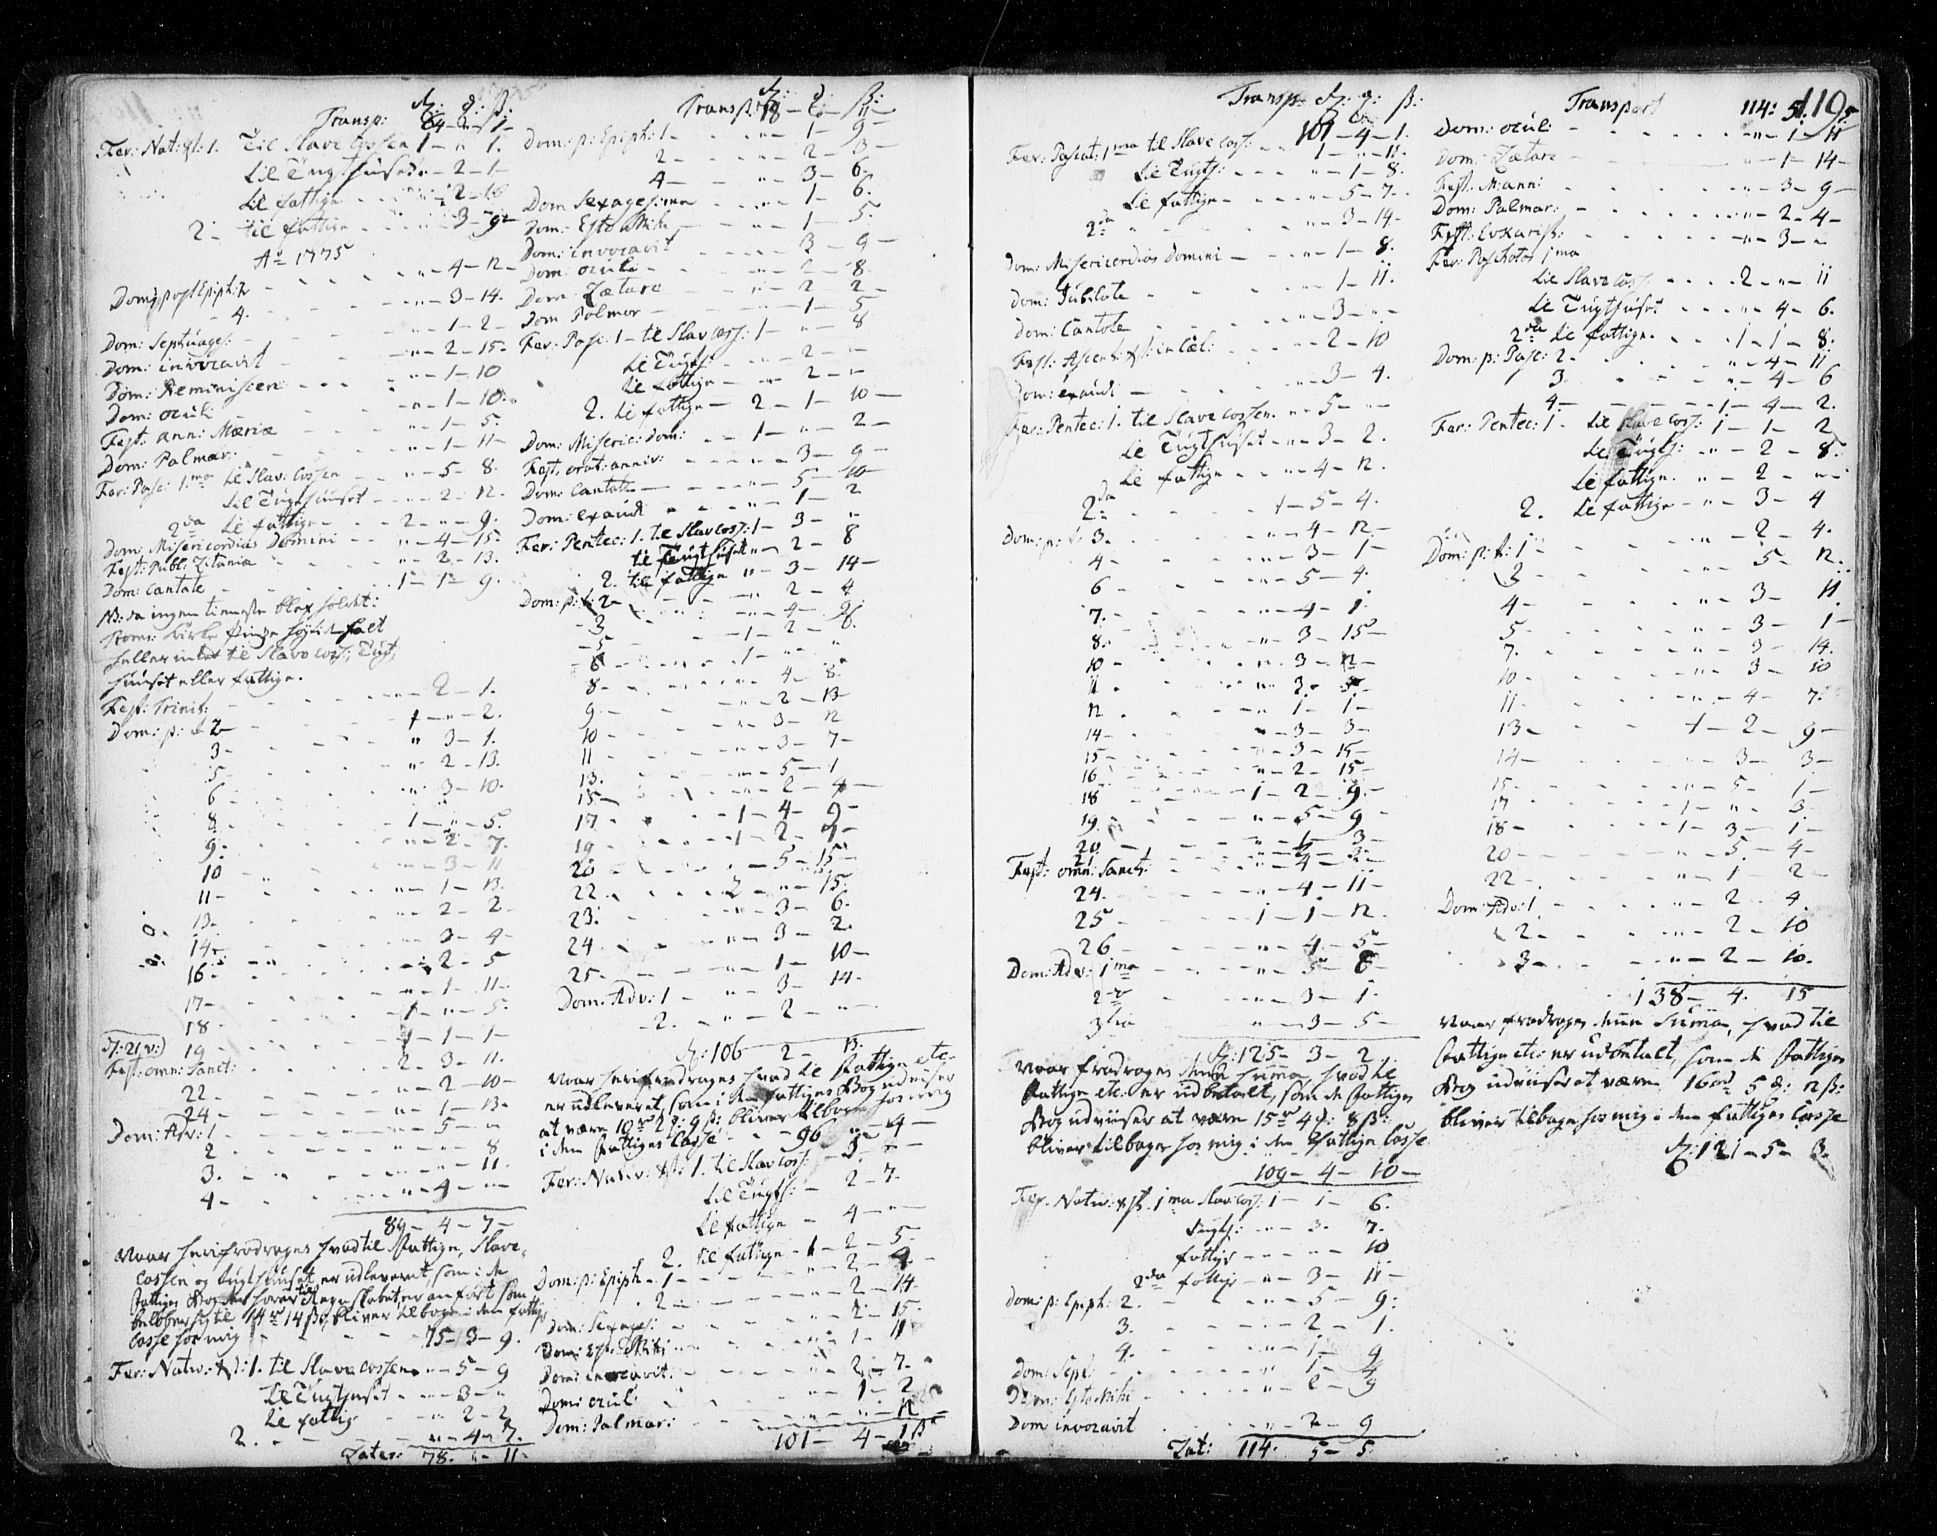 Transp: 64 - 2 - 1 -
Fer: Nat: 1. Til Slave Cassen 1 - " 1.
til Tugthuset " - 2 - 1 -
til fattige " - 2 - 10
2 - til fattige - - " - 3 - 9 -
Ao 1775
Dom: post Epiph: 2 - - " - 4 - 12 -
- 4. - - " - 3 - 14.
Dom: Septuages: - - " - 1 - 2 -
Dom: invocavit - - " - 2 - 15.
Dom: Reminiscere - - " - 1 - 10
Dom: oculi - - " - 1 - 10.
Fest: ann: Mariæ - - " - 1 - 5.
Dom: Palmar: - - " - 1 - 11 -
Fer: Pasc: 1.ma til Slav: Cassen - " - 5 - 8.
til Tugthuuset - " - 2 - 12.
2da til fattige - - 2 - " - 9.
Dom: Misericordias Domini - - " - 4 - 15.
Fest: Publ: Litaniæ - - " - 2 - 13.
Dom: Cantate - - 1 - 1 - 9.
NB: da ingen tieneste blev holdt:
Hom: Kirke Pindse høytid falt
heller intet til Slave Cass: Tugt,
huuset eller fattige.
Fest: Trinit: - - " - 2 - 1.
Dom: p: t: 2 - - 1 - " - 2.
3 - - " 3 - 1.
5 - - " 2 - 13.
6 - - " 3 - 10.
8 - - 1 - " - 5.
9 - - " 2 - 7.
10 - - " - 3 - 11
11 - - " - 1 - 13.
13 - - " - 2 - 2.
14 - - " - 3 - 4 -
16 - - " - 2 - 5
17 - - " - 1 - 11 -
18 - - 1 - " - 5.
19 - - 1 - 1 - 1 -
Fest: omn: Sanct: 2 - 3 - 11.
22 - - " - 2 - 10 -
24 - - " - 1 - 13.
Dom: Adv: 1 - - " - 5 - "
2 - - " - " - 8
3. - - " - " - 11.
4 - - " - 4 - "
89 - 4 - 7 -
Naar herfra drages hvad til Fattige, Slave,
Cassen og Tugthuuset er udleveret, som i de
Fattiges Bog
beløber sig til 14 rd 14 ß, bliver tilbage i den fattiges
Casse hos mig - - 75 - 3 - 9.
Fer: Nativ: 1. til Slave Cassen - " - 5 - 9
til Tugthuset - - " - 3 - "
til fattig - " - 2 - 2
2. - - " - 4 - 7.
Later: 78. " - 11 -
Transp: 78 - " - 11 -
Dom: p: Epiph: 1 - - 1 - 9 -
2 - - " - 2 - 3 -
4 - - " - 3 - 6.
Dom Sexagesima - - 1 - 6.
Dom: Esto Mihi - - 1 - 5.
Dom: invocavit - - 3 - 9 -
Dom: oculi - - 2 - 8.
Dom: Lætare - - " - 2 - 2 -
Dom Palmar - - 1 - 5
Fer: Pasc: 1 - til Slav Cass: 1 - " - 8
til Tugts: - - 2 - "
til fattige - " - 2 - "
2. til fattige - 2 - 1 - 10 -
Dom: Miseric: Dom: - - 1 - " - 2 -
Fest. orat: anniv: - - 3 - 9 -
Dom: Cantate - - 5 - 10 -
Dom: exaudi - - 1 - 2
Fer: Pentec: 1. til Slav Cass: 1 - 3 - "
til Tugthuset " - 2 - 8
2. til fattige " - 3 - 14 -
Dom: p: t: 2 - - " - 2 - 4
3 - - " - 4 - 9.
5 - - 1 - 2 - 8.
6 - - 1 - " - "
8 - - " - 4 - 8.
9 - - " - 2 - 13
10 - - " - 3 - 12
11 - - " - 3 - 7 -
13. - - " - 5 - 1
15 - - " - 2 - 4 -
17 - - 1 - 4 - 9 -
19 - - 1 - 2 - 9 -
20 - - " - 5 - 15
22. - - 2 - " - 15.
23. - - " - 3 - 6.
24 - - " - 3 - 2.
25 - - " - 1 - 10 -
Dom: Adv: 1 - " - 3 - 14.
- 2. - " - 2 - "
106 2 - 13.
Naar herfra drages hvad til Fattige etc
er udleveret, som i de fattiges Bog udviser
at være 10 rd 2 : 9 ß: bliver tilbage hos mig
i den Fattiges Casse - - 96 " - 4 -
Fer: Nativ: 1. til Slav Cass: - 3 - "
til Tugts: - 2 - 7.
til fattige - 4 - "
2. til fattige - 1 - 2 - 5.
Dom: p: Epiph - 1 - - 2 - 4 -
2 - - 2 - 14
Dom: Sexages: - - 2 - 15.
Dom: Esto Mihi - - " - 1 - 11
Dom: invocavit. - - " - 2 - 7.
Dom: oculi - - " - 1 - 2
Dom: Palmar: - - " - " - 12
101 - 4 - 1 ß
Transp: 101 - 4 - 1.
Fer: Pascat: 1 ma til Slave Cass: - - 1 - " - 11.
til Tugts: - - " - 1 - 8.
til fattige - - " - 5 - 7.
2da - - " - 3 - 14.
Dom: Misericordias Domini - - " - 1 - 8.
Dom: Jubilate - - " - 1 - 11.
Dom: Cantate - - " - 3 - "
Fest: Ascens: in Cæl: - - " - 2 - 10
Dom: exaudi - - " - 3 - 4.
Fer: Pentec: 1. til Slave Cassen. " - 5 - "
til Tugthuset - " - 3 - 2.
til fattige - - " - 4 - 12.
2da - - 1 - 5 - 4.
Dom: p: t: 3. - - " - 4 - 12 -
4 - - " - 3 - 1 -
6 - - " - 5 - 4.
7. - - " - 4 - 1.
8. - - " - 3 - 15 -
10 - - " - 3 - 12 -
11 - - " - 3 - 5 -
12 - - " - 1 - 1 -
14 - - " - 3 - 3 -
15 - - " - 3 - 15 -
16 - - " - 2 - 15 -
18 - - 1 - 2 - 9 -
19. - - " - 5 - 9 -
20 - - " - 1 - 3 -
21 - - " - 4 - 2 -
Fest: omn: Sanct:
24. - - " - 4 - 11 -
25 - - 1 - 1 - 12.
26 - - " - 4 - 5 -
Dom: Adv: 1 ma - - " - 5 - 8 -
2 - - " - 3 - 1.
3tia - - " - 3 - 5 -
125 - 3 - 2.
Naar fradrages denne Summa, hvad til
Fattige etc: er udbetalt, som de Fattiges
Bog udviiser at være 15 rd 4 : 8 ß:
bliver tilbage hos mig i den Fattige Casse
109 - 4 - 10 -
Fer. Nativ: 1 ma Slav Cass: 1 - 1 - 6.
Tugts: - " - 3. 7.
fattige - - " - 10
2da fattige - " - 3 - 11 -
Dom: p: Epiph: 2. - - " - 5 - 9:
3. - - " - 2 - 1.
4. - - " - 1 - 9
Dom: Sept: - - " - 1 - 4
Dom: Esto Mihi - - " - 2 - 9
Dom invocavit - - " - 2 - 9
Lat: 114. 5 - 5.
Transport 114: 5. 5. 110
Dom: oculi - - " - 1 - 11
Dom: Lætare - - " - 1 - 14 -
Fest: M: ann: - - " - 3 - 9 -
Dom: Palmar: - - " - 2 - 4 -
Fest: Eukariss: - - " - 3 - "
Fer: Paschatos 1 ma
til Slave Cass. - - 2 - " - 11
til Tugthuset - - " - 4 - 6.
2da til fattige. - - 1 - 1 - 8.
Dom: p: Pasc: 2. - - " - 4 - 11
3. - - " - 4 - 6
4. - - 1 - 4 - 2.
Fer: Pentec: 1 - til Slave Cass: 1 - 1 - 2
til Tugts: " - 2 - 8.
til fattige. " - 2 - "
2. til fattige - " - 3 - 4
Dom: p: t: 1 - - " - 2 - 4.
3 - - " 5 - 12.
4 - - " 3 - 11.
5 - - " - 3 - 1 -
7. - - " - 3 - 14.
10 - - " - 3 - 10
11 - - " - 4 - 7.
13 - - 1 - 2 - 9 -
14 - - " 3 - 3 -
15 - - " - 5 - 1 -
17 - - 1 - " - 3.
18 - - 1 - 3 - 1 -
20 - - " - 5 - 4 -
22 - - " - 1 - 2 -
Dom: Adv: 1 - - " - 2 - 4.
2 - - " - 2 - 10
3 - - " - 2 - 10.
138 - 4. 15
Naar fradrages denne Summa, hvad til
Fattige etc: er udbetalt, som de Fattiges
Bog udviiser at være 16 rd 5 : 12 ß:
bliver tilbage hos mig i den fattiges Casse
121 - 5 - 3.